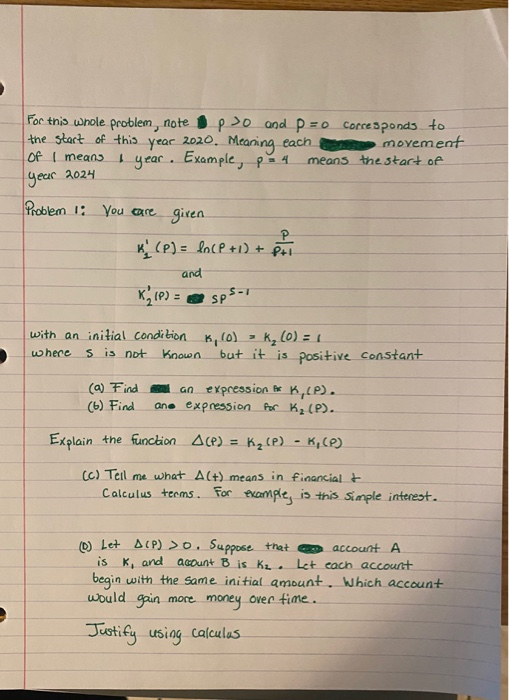 For this whole problem, note p >0 and p = 0 corresponds to
the start of this year 2020. Meaning each movement
of 1 means 1 year. Example, p = 4 means the start of
year 2024
Problem 1: You are given
K₁'(P) = ln(P+1) + P/(P+1)
and
K₂'(P) = SP^(S-1)
with an initial condition K₁(0) = K₂(0) = 1
where S is not known but it is positive constant
(a) Find an expression for K₁(P).
(b) Find an expression for K₂(P).
Explain the function Δ(P) = K₂(P) - K₁(P)
(C) Tell me what Δ(t) means in financial &
Calculus terms. For example, is this simple interest.
(D) Let Δ(P) > 0. Suppose that account A
is K₁ and account B is K₂. Let each account
begin with the same initial amount. Which account
would gain more money over time.
Justify using calculus